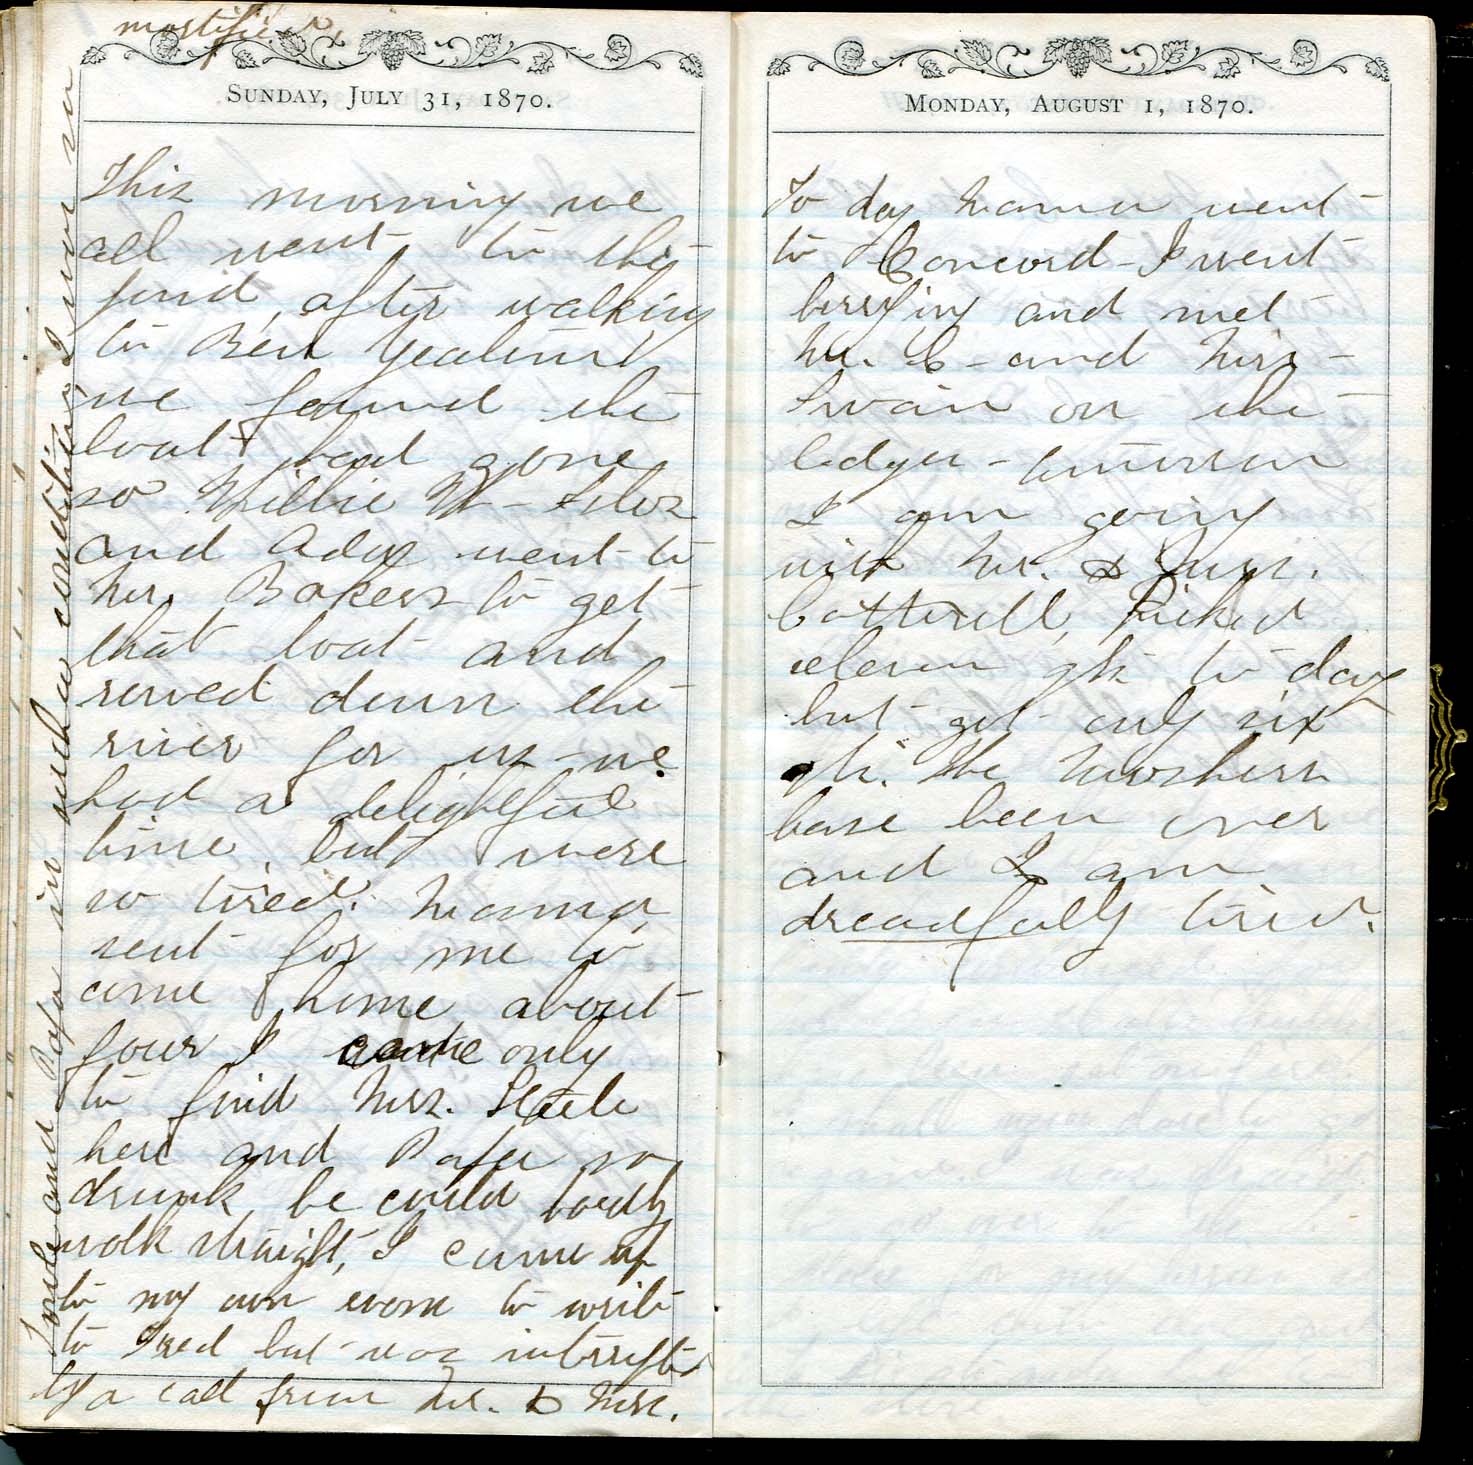 SUNDAY, JULY 31, 1870.
This morning we
all went to the
pond, after walking
to Ben Yeatons
we found the
boat had gone
so Millie M - Silas
and Ada went to
Mr. Bakers to get
that boat and
rowed down the
river for us - we
had a delightful
time, but were
so tired. Mama
sent for me to
come home about
four I came only
to find Mrs. Steele
here and Papa so
drunk he could hardly
walk straight, I came up
to my own room to write
to Fred but was interrupted
by a call from Mr. & Mrs.
Towle and Papa in such a condition I was so
mortified.
MONDAY, AUGUST 1, 1870.
To day Mama went
to Concord - I went
berrying and met
Mr. C - and Miss -
Swain on the
ledges - tomorrow
I am going
with Mr. & Mrs.
Cotterell, Picked
eleven qts to day
but got only six
qts. The Marshers
have been over
and I am
dreadfully tired.